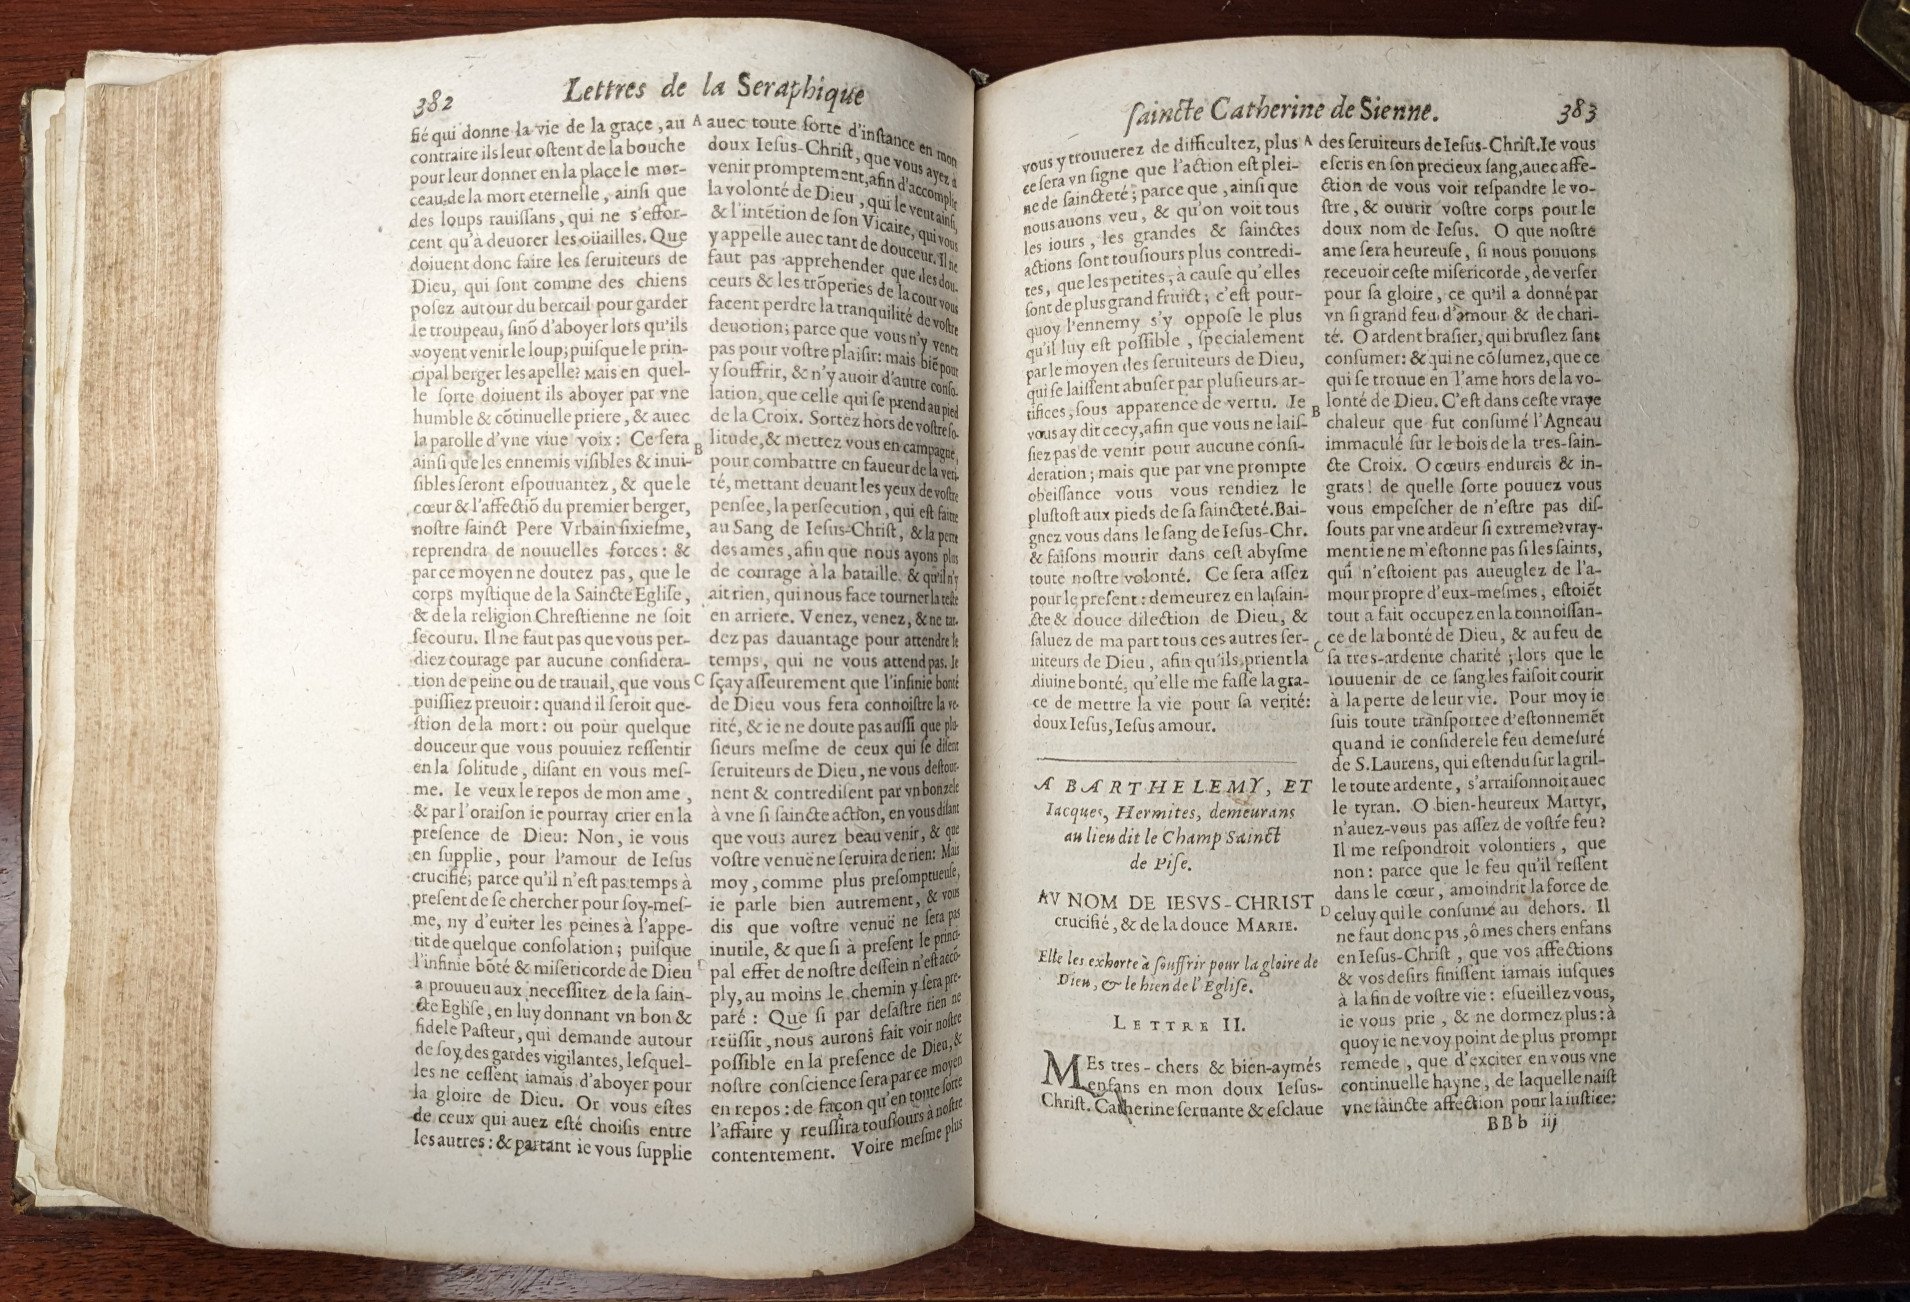 382
Lettres de la Seraphique
fié qui donne la vie de la grace, au
contraire ils leur ostent de la bouche
pour leur donner en la place le mor-
ceau de la mort eternelle, ainsi que
des loups rauissans, qui ne s'effor-
cent qu'à deuorer les oüailles. Que
doiuent donc faire les seruiteurs de
Dieu, qui sont comme des chiens
posez autour du bercail pour garder
le troupeau, sinõ d'aboyer lors qu'ils
voyent venir le loup; puisque le prin-
cipal berger les apelle? Mais en quel-
le sorte doiuent ils aboyer par vne
humble & cõtinuelle priere, & auec
la parolle d'vne viue voix: Ce sera
ainsi que les ennemis visibles & inui-
sibles seront espouuantez, & que le
cœur & l'affectiõ du premier berger,
nostre sainct Pere Vrbain sixiesme,
reprendra de nouuelles forces: &
par ce moyen ne doutez pas, que le
corps mystique de la Saincte Eglise,
& de la religion Chrestienne ne soit
secouru. Il ne faut pas que vous per-
diez courage par aucune considera-
tion de peine ou de trauail, que vous
puissiez preuoir: quand il seroit que-
stion de la mort: ou pour quelque
douceur que vous pouuiez ressentir
en la solitude, disant en vous mes-
me. Ie veux le repos de mon ame,
& par l'oraison ie pourray crier en la
presence de Dieu: Non, ie vous
en supplie, pour l'amour de Iesus
crucifié; parce qu'il n'est pas temps à
present de se chercher pour soy-mes-
me, ny d'euiter les peines à l'appe-
tit de quelque consolation; puisque
l'infinie bõté & misericorde de Dieu
a prouueu aux necessitez de la sain-
cte Eglise, en luy donnant vn bon &
fidele Pasteur, qui demande autour
de soy des gardes vigilantes, lesquel-
les ne cessent iamais d'aboyer pour
la gloire de Dieu. Or vous estes
de ceux qui auez esté choisis entre
les autres: & partant ie vous supplie
A
B
C
auec toute sorte d'instance en mon
doux Iesus-Christ, que vous ayez à
venir promptement, afin d'accomplir
la volonté de Dieu, qui le veut ainsi,
& l'intẽtion de son Vicaire, qui vous
y appelle auec tant de douceur. Il ne
faut pas apprehender que les dou-
ceurs & les trõperies de la cour vous
facent perdre la tranquilité de vostre
deuotion; parce que vous n'y venez
pas pour vostre plaisir: mais biẽ pour
y souffrir, & n'y auoir d'autre conso-
lation, que celle qui se prend au pied
de la Croix. Sortez hors de vostre so-
litude, & mettez vous en campagne,
pour combattre en faueur de la veri-
té, mettant deuant les yeux de vostre
pensee, la persecution, qui est faitte
au Sang de Iesus-Christ, & la perte
des ames, afin que nous ayons plus
de courage à la bataille, & qu'il n'y
ait rien, qui nous face tourner la teste
en arriere. Venez, venez, & ne tar-
dez pas dauantage pour attendre le
temps, qui ne vous attend pas. Ie
sçay asseurement que l'infinie bonté
de Dieu vous fera connoistre la ve-
rité, & ie ne doute pas aussi que plu-
sieurs mesme de ceux qui se disent
seruiteurs de Dieu, ne vous destour-
nent & contredisent par vn bon zele
à vne si saincte action, en vous disant
que vous aurez beau venir, & que
vostre venuë ne seruira de rien: Mais
moy, comme plus presomptueuse,
ie parle bien autrement, & vous
dis que vostre venuë ne sera pas
inutile, & que si à present le princi-
pal effet de nostre dessein n'est accõ-
ply, au moins le chemin y sera pre-
paré: Que si par desastre rien ne
reüssit, nous aurons fait voir nostre
possible en la presence de Dieu, &
nostre conscience sera par ce moyen
en repos: de façon qu'en toute sorte
l'affaire y reussira tousiours à nostre
contentement. Voire mesme plus
saincte Catherine de Sienne.
383
vous y trouuerez de difficultez, plus
ce sera vn signe que l'action est plei-
ne de saincteté; parce que, ainsi que
nous auons veu, & qu'on voit tous
les iours, les grandes & sainctes
actions sont tousiours plus contredi-
tes, que les petites, à cause qu'elles
sont de plus grand fruict; c'est pour-
quoy l'ennemy s'y oppose le plus
qu'il luy est possible, specialement
par le moyen des seruiteurs de Dieu,
qui se laissent abuser par plusieurs ar-
tifices, sous apparence de vertu. Ie
vous ay dit cecy, afin que vous ne lais-
siez pas de venir pour aucune consi-
deration; mais que par vne prompte
obeissance vous vous rendiez le
plustost aux pieds de sa saincteté. Bai-
gnez vous dans le sang de Iesus-Chr.
& faisons mourir dans cest abysme
toute nostre volonté. Ce sera assez
pour le present: demeurez en la sain-
cte & douce dilection de Dieu, &
saluez de ma part tous ces autres ser-
uiteurs de Dieu, afin qu'ils prient la
diuine bonté, qu'elle me fasse la gra-
ce de mettre la vie pour sa verité:
doux Iesus, Iesus amour.
A BARTHELEMY, ET
Iacques, Hermites, demeurans
au lieu dit le Champ Sainct
de Pise.
AV NOM DE IESVS-CHRIST
crucifié, & de la douce MARIE.
Elle les exhorte à souffrir pour la gloire de
Dieu, & le bien de l'Eglise.
LETTRE II.
MEs tres-chers & bien-aymés
enfans en mon doux Iesus-
Christ. Catherine seruante & esclaue
A
B
C
D
des seruiteurs de Iesus-Christ. Ie vous
escris en son precieux sang, auec affe-
ction de vous voir respandre le vo-
stre, & ouurir vostre corps pour le
doux nom de Iesus. O que nostre
ame sera heureuse, si nous pouuons
receuoir ceste misericorde, de verser
pour sa gloire, ce qu'il a donné par
vn si grand feu d'amour & de chari-
té. O ardent brasier, qui bruslez sans
consumer: & qui ne cõsumez, que ce
qui se trouue en l'ame hors de la vo-
lonté de Dieu. C'est dans ceste vraye
chaleur que fut consumé l'Agneau
immaculé sur le bois de la tres-sain-
cte Croix. O cœurs endurcis & in-
grats! de quelle sorte pouuez vous
vous empescher de n'estre pas dis-
souts par vne ardeur si extreme? vray-
ment ie ne m'estonne pas si les saints,
qui n'estoient pas aueuglez de l'a-
mour propre d'eux-mesmes, estoiẽt
tout a fait occupez en la connoissan-
ce de la bonté de Dieu, & au feu de
sa tres-ardente charité; lors que le
souuenir de ce sang les faisoit courir
à la perte de leur vie. Pour moy ie
suis toute transportee d'estonnemẽt
quand ie considere le feu demesuré
de S. Laurens, qui estendu sur la gril-
le toute ardente, s'arraisonnoit auec
le tyran. O bien-heureux Martyr,
n'auez-vous pas assez de vostre feu?
Il me respondroit volontiers, que
non: parce que le feu qu'il ressent
dans le cœur, amoindrit la force de
celuy qui le consumé au dehors. Il
ne faut donc pas, ô mes chers enfans
en Iesus-Christ, que vos affections
& vos desirs finissent iamais iusques
à la fin de vostre vie: esueillez vous,
ie vous prie, & ne dormez plus: à
quoy ie ne voy point de plus prompt
remede, que d'exciter en vous vne
continuelle hayne, de laquelle naist
vne saincte affection pour la iustice:
BBb iij